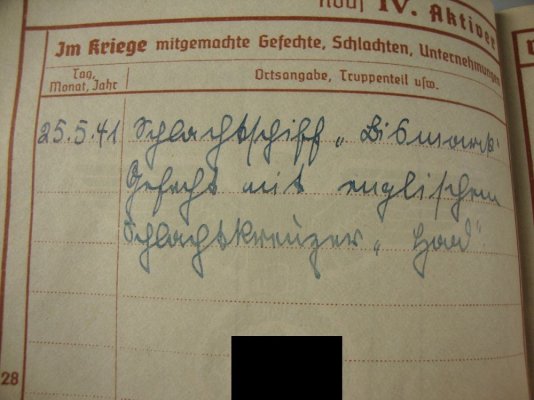 Noch IV. Aktiver
Im Kriege mitgemachte Gefechte, Schlachten, Unternehmungen
Tag, Monat, Jahr
Ortsangabe, Truppenteil usw.
25.5.41 Schlachtschiff „Bismark"
Gefecht mit englischem
Schlachtkreuzer „Hood"
28